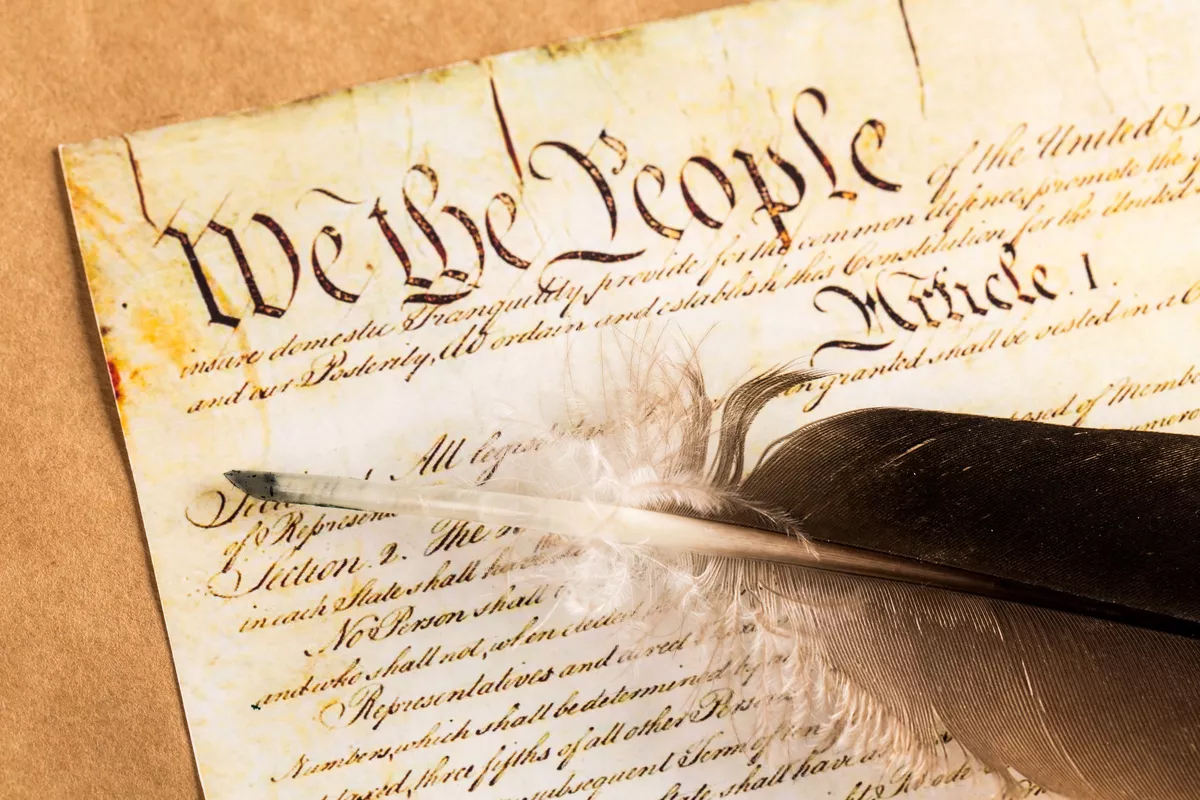 We the People of the United S
insure domestic Tranquility, provide for the common defence, promote the
and our Posterity, do ordain and establish this Constitution for the United
Article. I.
granted shall be vested in a
Section. 1. All legis
of Represen
Section. 2. The posed of Memb
in each State shall have numer
No Person shall
and who shall not, when elected
Representatives and direct Taxes
Numbers, which shall be determined by
three fifths of all other Perso
subsequent Term of ten
State shall have